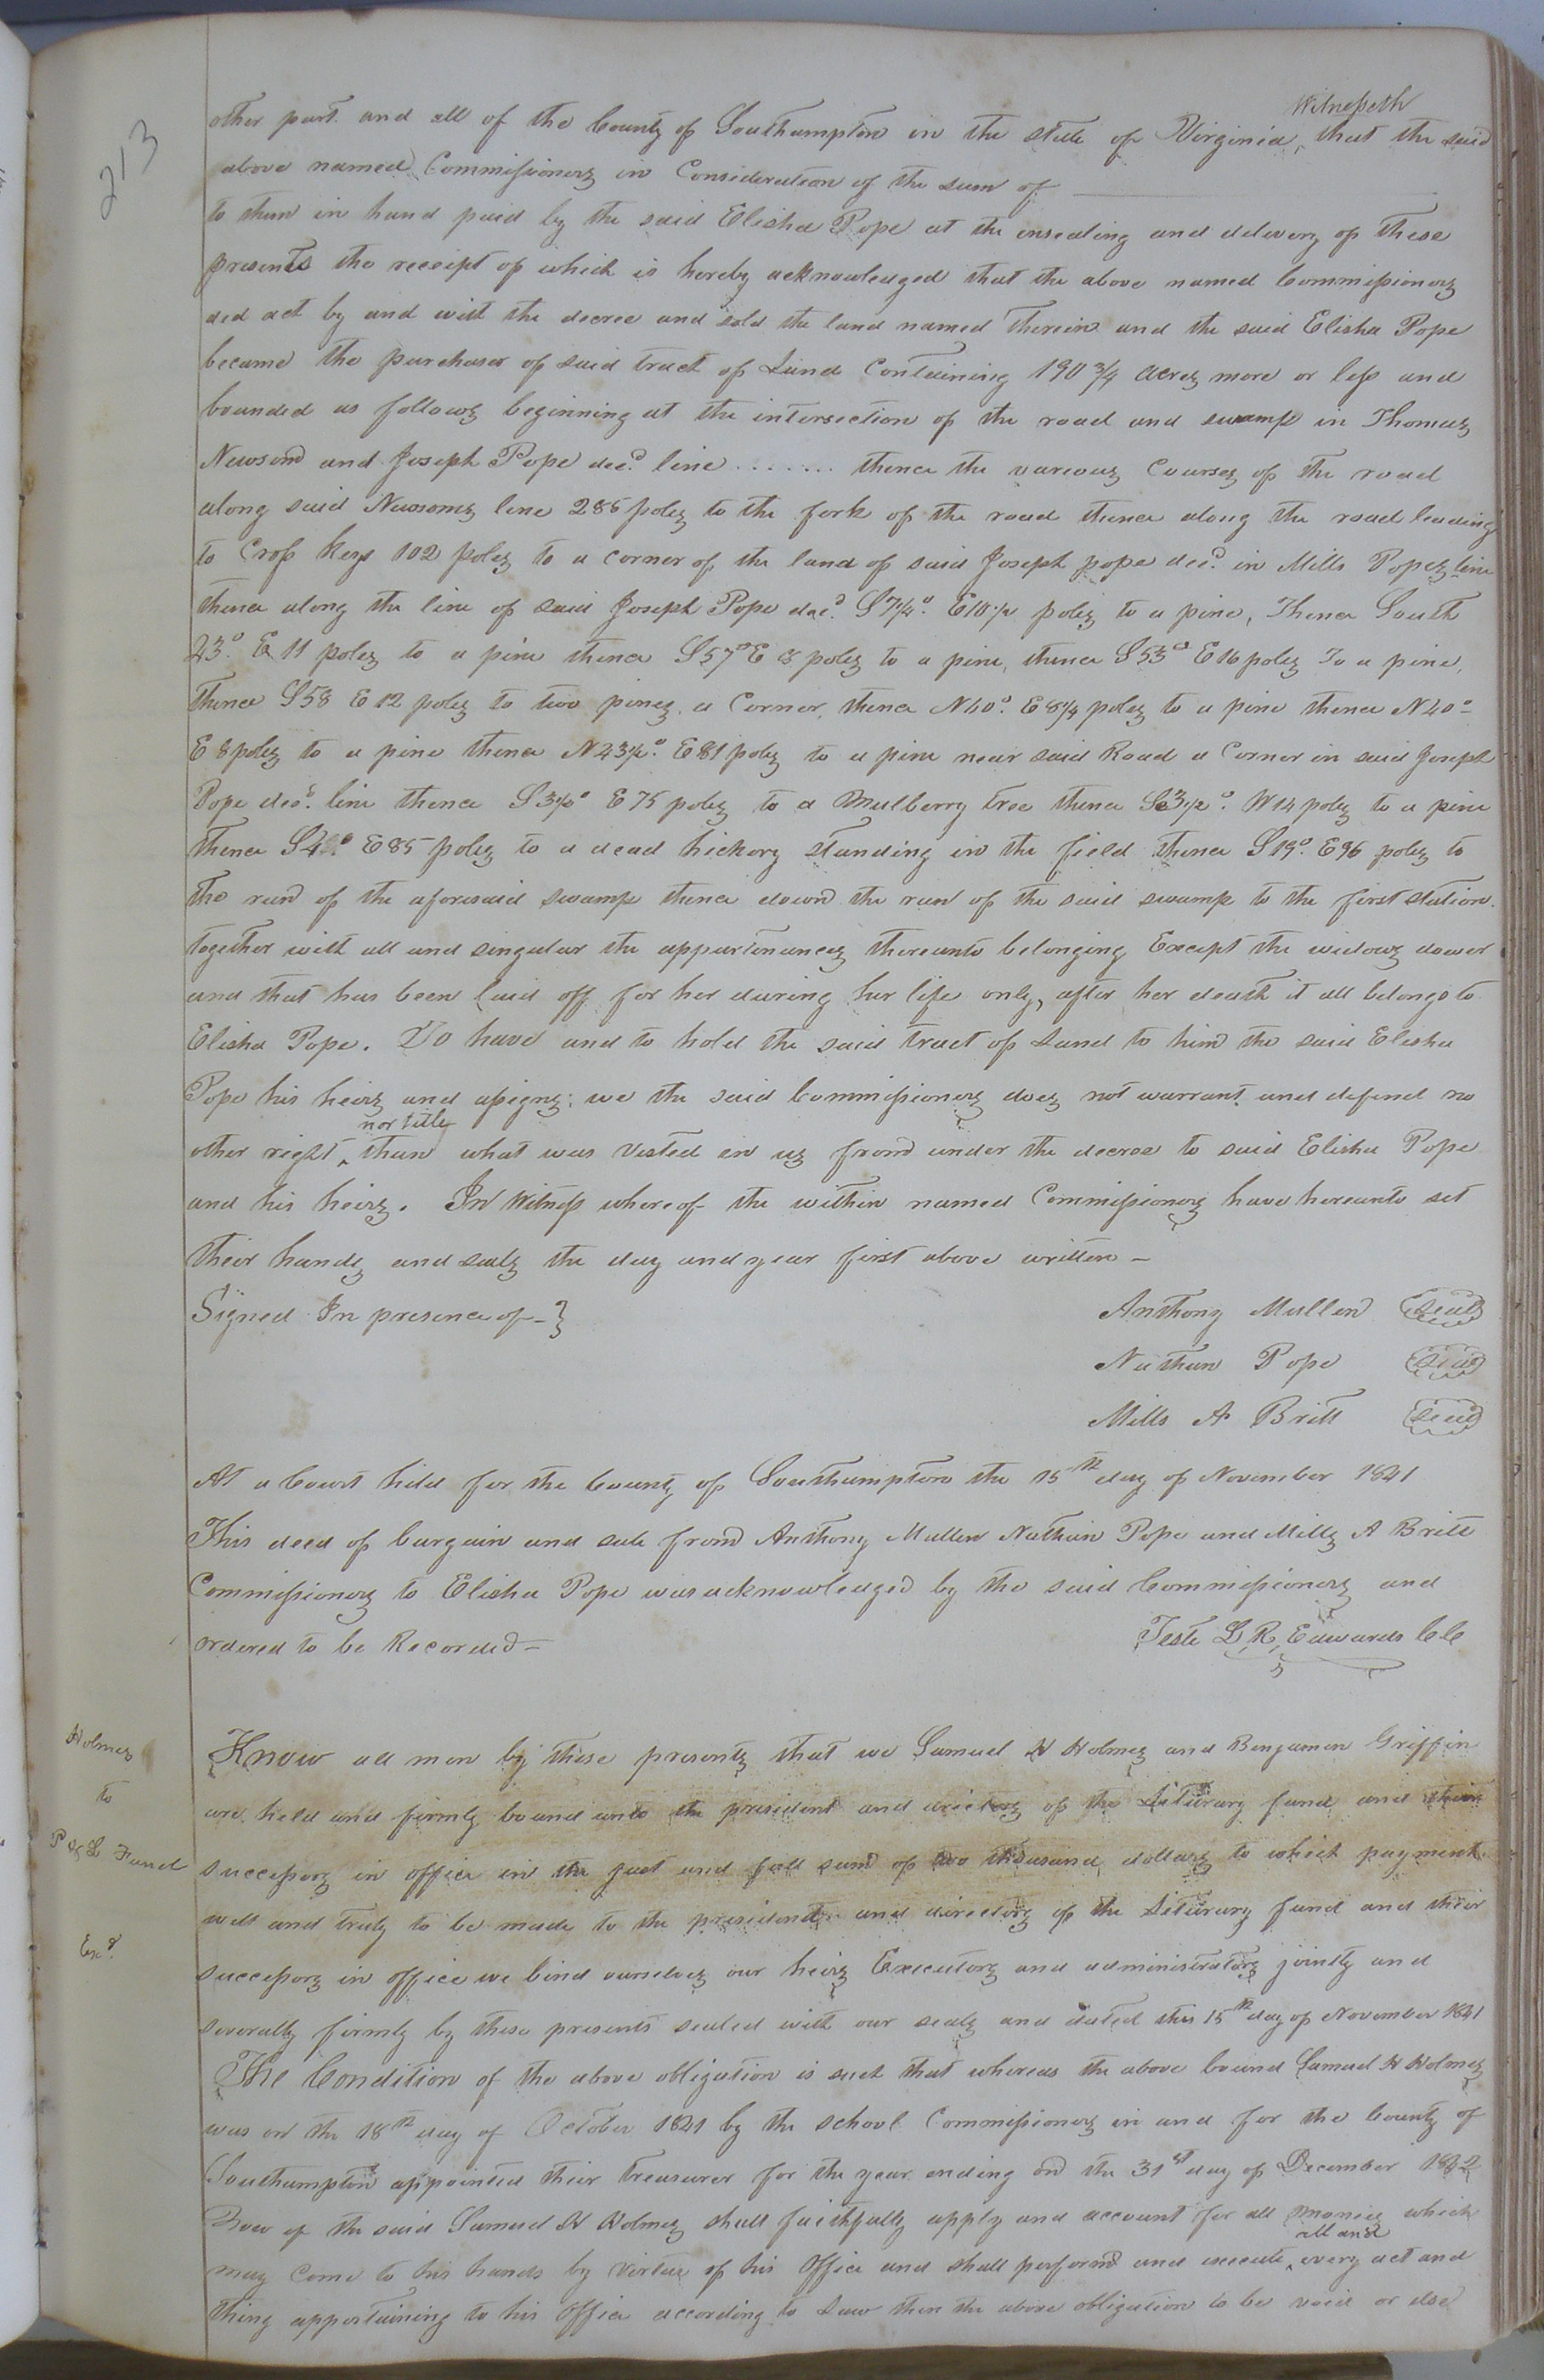 213
Witnesseth
other part. and all of the County of Southampton in the state of Virginia, that the said
above named Commissioners in Consideration of the sum of
to them in hand paid by the said Elisha Pope at the ensealing and delivery of these
presents the receipt of which is hereby acknowledged that the above named Commissioners
did act by and with the decree and sold the land named Therein and the said Elisha Pope
became the purchaser of said tract of Land Containing 190 3/4 acres more or less and
bounded as follows beginning at the intersection of the road and swamp in Thomas
Newsom and Joseph Pope decd. line ....... thence the various Courses of the road
along said Newsoms line 285 poles to the fork of the road thence along the road leading
to Cross Keys 102 poles to a corner of the land of said Joseph pope decd. in Mills Popes line
thence along the line of said Joseph Pope decd. S 7 1/4°. E 10 1/2 poles to a pine, Thence South
23°. E 11 poles to a pine thence S 57° E 8 poles to a pine, thence S 53° E 16 poles To a pine,
thence S 58 E 12 poles to two pines a Corner, thence N 40°. E 8 1/4 poles to a pine thence N 40°
E 8 poles to a pine thence N 43 1/2°. E 81 poles to a pine near said Road a Corner in said Joseph
Pope decd. line thence S 3 1/2° E 75 poles to a Mulberry tree thence S 3 1/2°. W 14 poles to a pine
thence S 4°. E 85 poles to a dead hickory standing in the field thence S 19°. E 96 poles to
the run of the aforesaid swamp thence down the run of the said swamp to the first station.
together with all and singular the appartenances thereunto belonging Except the widows dower
and that has been laid off for her during her life only, after her death it all belongs to
Elisha Pope. To have and to hold the said tract of Land to him the said Elisha
Pope his heirs and assigns; we the said Commissioners does not warrant and defend no
nor title
other right ‸ than what was vested in us from under the decree to said Elisha Pope
and his heirs. In Witness whereof the within named Commissioners have hereunto set
their hands and seals the day and year first above written —
Signed In presence of - }
Anthony Mullen Seal
Nathan Pope Seal
Mills A Britt Seal
At a Court held for the County of Southampton the 15th day of November 1841
This deed of bargain and sale from Anthony Mullen Nathan Pope and Mills A Britt
Commissioners to Elisha Pope was acknowledged by the said Commissioners and
ordered to be Recorded —
Teste L R Edwards CC
Holmes
to
P &c L Fund
Exd.
Know all men by these presents that we Samuel H Holmes and Benjamin Griffin
are held and firmly bound unto the president and directors of the Literary fund and their
successors in office in the just and full sum of two thousand dollars to which payment
well and truly to be made to the president and directors of the Literary fund and their
successors in office we bind ourselves our heirs Executors and administrators jointly and
severally firmly by these presents sealed with our seals and dated this 15th day of November 1841
The Condition of the above obligation is such that whereas the above bound Samuel H Holmes
was on the 18th day of October 1841 by the school Commissioners in and for the County of
Southampton appointed their treasurer for the year ending on the 31st day of December 1842
Now if the said Samuel H Holmes shall faithfully apply and account for all monies which
all and
may Come to his hands by virtue of his Office and shall perform and execute ‸ every act and
thing appertaining to his Office according to Law then the above obligation to be void or else